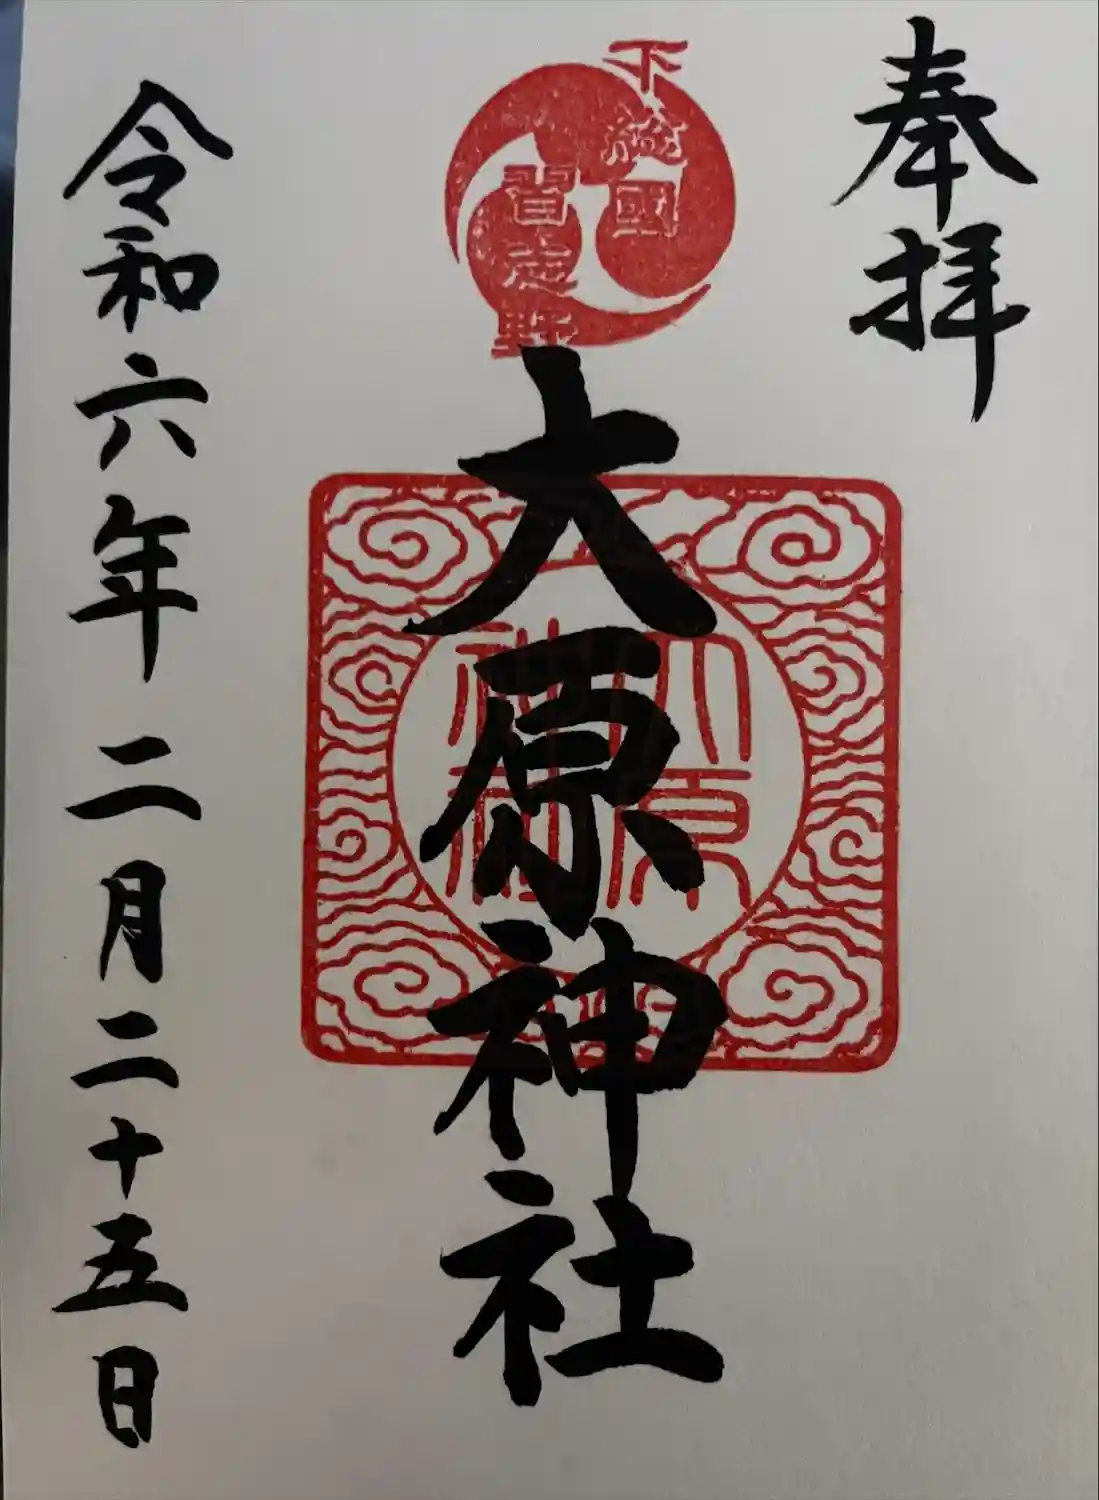 奉拝
下總國
習志野
大原神社
大原
神社
令和六年二月二十五日